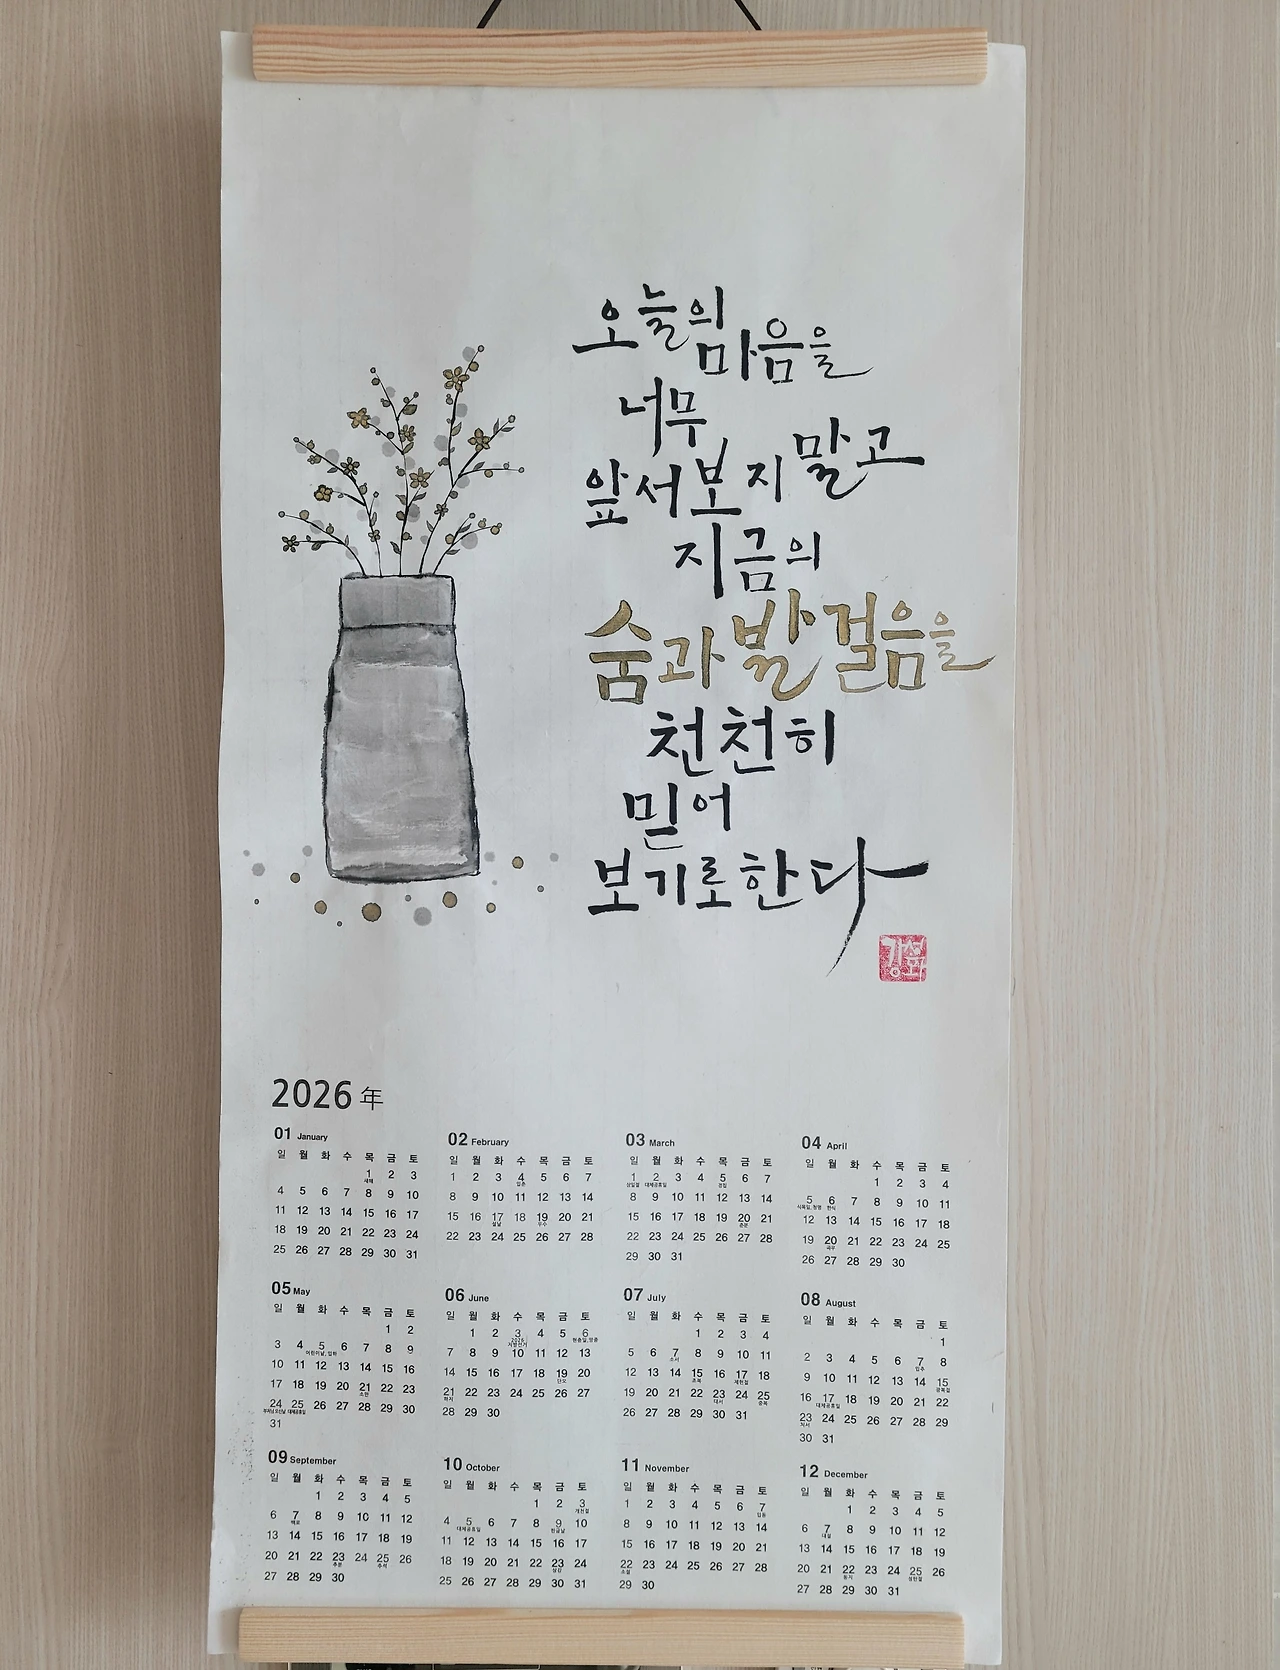 오늘의
마음을
너무
앞서보지 말고
지금의
숨과 발걸음을
천천히
믿어
보기로한다
강선화
2026 年
01 January
일 월 화 수 목 금 토
1 2 3
새해
4 5 6 7 8 9 10
11 12 13 14 15 16 17
18 19 20 21 22 23 24
25 26 27 28 29 30 31
02 February
일 월 화 수 목 금 토
1 2 3 4 5 6 7
입춘
8 9 10 11 12 13 14
15 16 17 18 19 20 21
설날 우수
22 23 24 25 26 27 28
03 March
일 월 화 수 목 금 토
1 2 3 4 5 6 7
삼일절 대체공휴일 경칩
8 9 10 11 12 13 14
15 16 17 18 19 20 21
춘분
22 23 24 25 26 27 28
29 30 31
04 April
일 월 화 수 목 금 토
1 2 3 4
5 6 7 8 9 10 11
식목일, 청명 한식
12 13 14 15 16 17 18
19 20 21 22 23 24 25
곡우
26 27 28 29 30
05 May
일 월 화 수 목 금 토
1 2
3 4 5 6 7 8 9
어린이날, 입하
10 11 12 13 14 15 16
17 18 19 20 21 22 23
소만
24 25 26 27 28 29 30
부처님오신날 대체공휴일
31
06 June
일 월 화 수 목 금 토
1 2 3 4 5 6
2026 현충일, 망종
지방선거
7 8 9 10 11 12 13
14 15 16 17 18 19 20
단오
21 22 23 24 25 26 27
하지
28 29 30
07 July
일 월 화 수 목 금 토
1 2 3 4
5 6 7 8 9 10 11
소서
12 13 14 15 16 17 18
초복 제헌절
19 20 21 22 23 24 25
대서 중복
26 27 28 29 30 31
08 August
일 월 화 수 목 금 토
1
2 3 4 5 6 7 8
입추
9 10 11 12 13 14 15
광복절
16 17 18 19 20 21 22
대체공휴일
23 24 25 26 27 28 29
처서
30 31
09 September
일 월 화 수 목 금 토
1 2 3 4 5
6 7 8 9 10 11 12
백로
13 14 15 16 17 18 19
20 21 22 23 24 25 26
추분 추석
27 28 29 30
10 October
일 월 화 수 목 금 토
1 2 3
개천절
4 5 6 7 8 9 10
대체공휴일 한글날
11 12 13 14 15 16 17
18 19 20 21 22 23 24
상강
25 26 27 28 29 30 31
11 November
일 월 화 수 목 금 토
1 2 3 4 5 6 7
입동
8 9 10 11 12 13 14
15 16 17 18 19 20 21
22 23 24 25 26 27 28
소설
29 30
12 December
일 월 화 수 목 금 토
1 2 3 4 5
6 7 8 9 10 11 12
대설
13 14 15 16 17 18 19
20 21 22 23 24 25 26
동지 성탄절
27 28 29 30 31